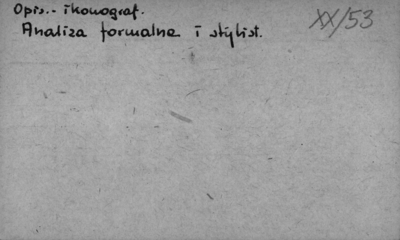 Opis.- ikonograf. XX/53
Analiza formalna i stylist.